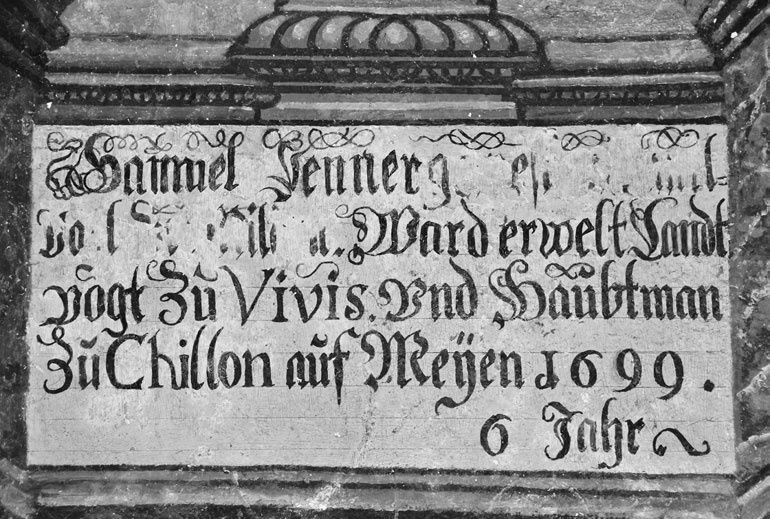 Samuel Jenner
Ward erwelt Landt
vogt Zŭ Vivis. Vnd Haŭbtman
Zŭ Chillon aŭf Meÿen 1699.
6 Jahr